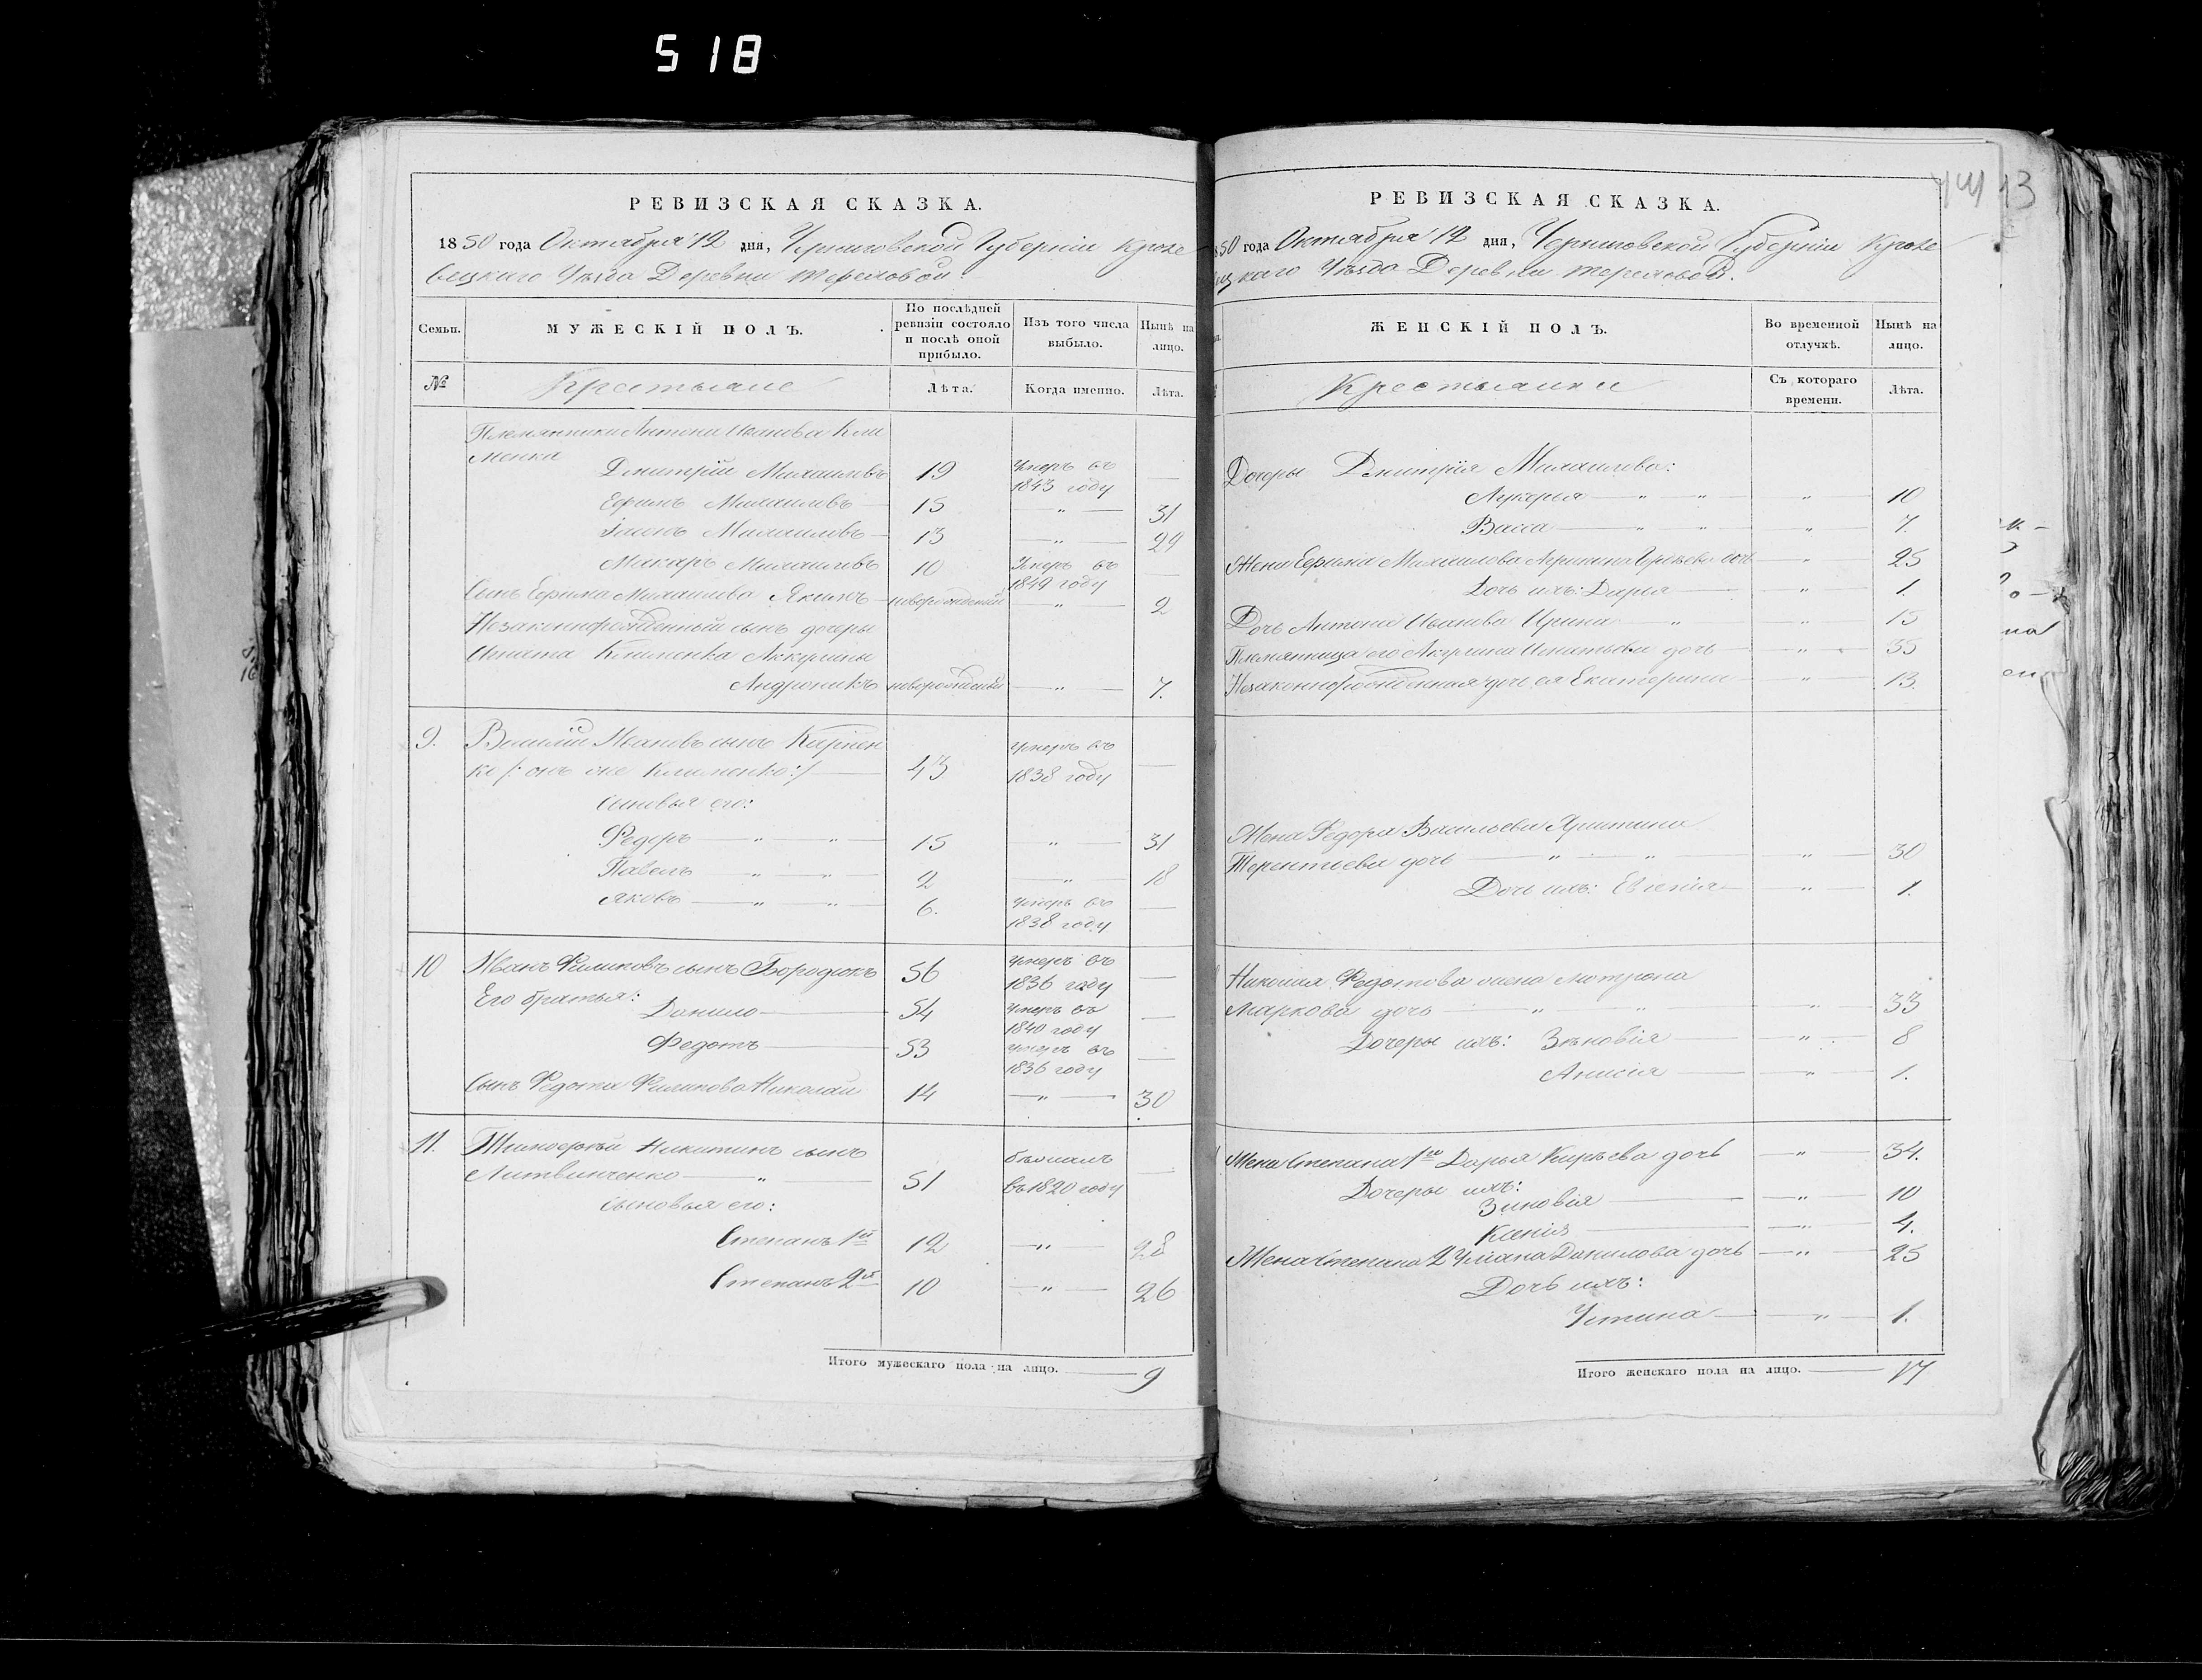 518
РЕВИЗСКАЯ СКАЗКА.
1850 года Октября 12 дня, Черниговской Губерніи Кроле
вецкаго Уѣзда Деревни Тереховой.
Семьи.
МУЖЕСКІЙ ПОЛЪ.
По послѣдней ревизіи состояло и послѣ оной прибыло.
Изъ того числа выбыло.
Нынѣ на лицо.
№
Крестьяне
Лѣта.
Когда именно.
Лѣта.
Племянники Антона Иванова Кли
менка
Дмитрій Михаиловъ 19 Умеръ въ 1843 году —
Ефимъ Михаиловъ 15 — " — 31
Михаиловъ 13 — " — 29
Макаръ Михаиловъ 10 Умеръ въ 1849 году —
Сынъ Ефима Михаилова Якимъ новорожденный — " — 2
Незаконнорожденный сынъ дочери
Игната Клименка Аккулины
Андроникъ новорожденный — " — 7.
9. Василій Ивановъ сынъ Кириен
ко /: онъ же Клименко :/ 43 Умеръ въ 1838 году —
Сыновья его:
Федоръ — " — " — 15 " — 31
Павелъ — " — " — 2 — " — 18
Яковъ — " — " — 6. Умеръ въ 1838 году —
10 Иванъ Филиповъ сынъ Бородюкъ 56 Умеръ въ 1836 году —
Его братья:
Данило — 54 Умеръ въ 1840 году —
Федотъ — 53 Умеръ въ 1836 году —
Сынъ Федота Филипова Николай 14 — " — 30
11. Тимофѣй Никитинъ сынъ
Литвинченко — " — 51 бѣжалъ въ 1820 году —
Сыновья его:
Степанъ 1й 12 — " — 28
Степанъ 2й 10 — " — 26
Итого мужескаго пола на лицо. — 9
РЕВИЗСКАЯ СКАЗКА.
13
50 года Октября 12 дня, Черниговской Губерніи Кроле
цкаго Уѣзда Деревни Тереховой.
ЖЕНСКІЙ ПОЛЪ.
Во временной отлучкѣ.
Нынѣ на лицо.
Крестьянки
Съ котораго времени.
Лѣта.
Дочеры Дмитрія Михаилова:
Лукерья — " — " — " — 10
Васса — " — " — " — 7.
Жена Ефима Михаилова дочь — " — 25
Дочь ихъ: Дарья — " — 1.
Дочь Антона Иванова Ирина — " — " — 15
Племянница его Акулина Игнатьева дочь — " — 35
Незаконнорожденная дочь ея Екатерина — " — 13.
Жена Федора Васильева Христина
Терентіева дочь — " — " — " — 30
Дочь ихъ: Евгенія — " — 1.
Николая Федотова жена Мотрона
Маркова дочь — " — " — " — 33
Дочеры ихъ: Зѣновія — " — 8
Анисія — " — 1.
Жена Степана 1го Дарья Кирѣева дочь — " — 34.
Дочеры ихъ:
Зиновія — " — 10
Ксенія — " — 4.
Жена Степана 2 Уліана Данилова дочь — " — 25
Дочь ихъ:
Устина — " — 1.
Итого женскаго пола на лицо. — 17